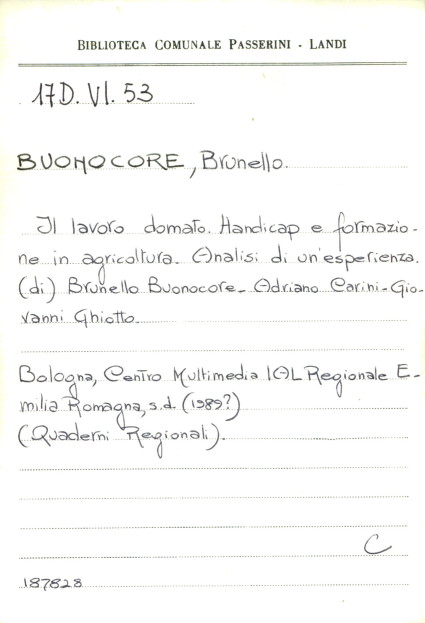 BIBLIOTECA COMUNALE PASSERINI - LANDI
17D. VI. 53
BUONOCORE, Brunello.
Il lavoro domato. Handicap e formazio-
ne in agricoltura. Analisi di un'esperienza.
(di) Brunello Buonocore - Adriano Carini - Gio-
vanni Ghiotto.
Bologna, Centro Multimedia IAL Regionale E-
milia Romagna, s.d. (1989?)
(Quaderni Regionali).
C
187828